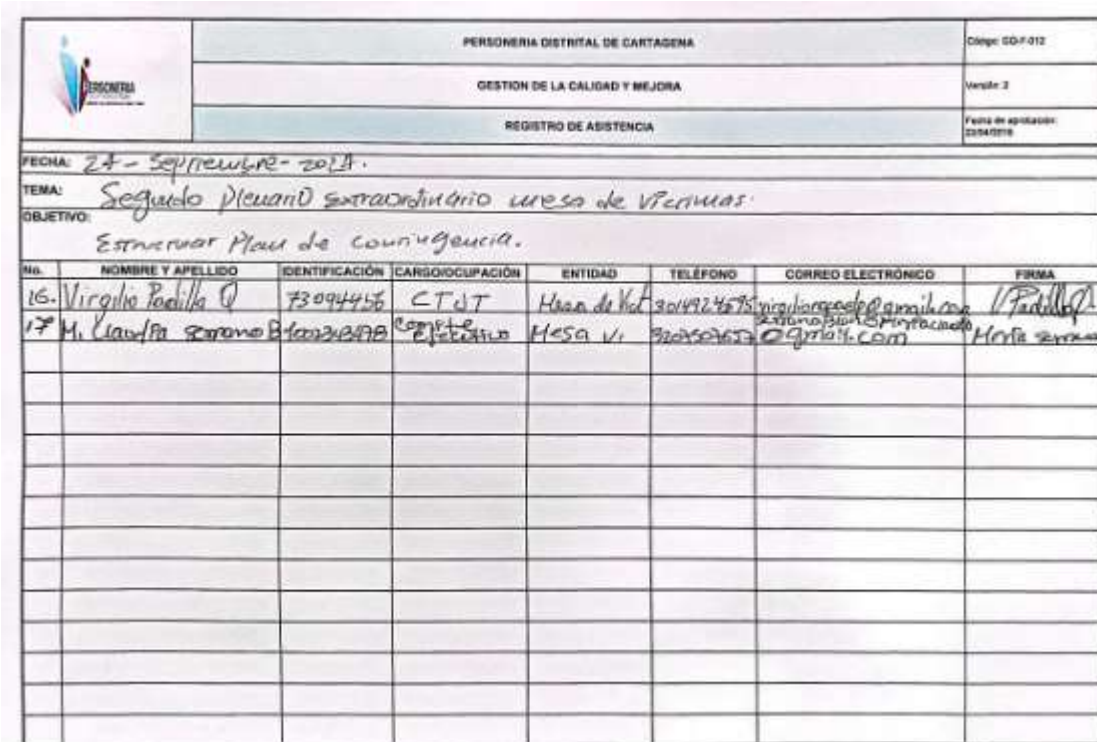 PERSONERIA
PERSONERIA DISTRITAL DE CARTAGENA
Código: GD-F-012
GESTION DE LA CALIDAD Y MEJORA
Versión: 2
REGISTRO DE ASISTENCIA
Fecha de aprobación:
FECHA: 24 - Septiembre - 2024.
TEMA: Segundo Plenario Extraordinario mesa de Victimas.
OBJETIVO:
Estructurar Plan de contingencia.
No. NOMBRE Y APELLIDO IDENTIFICACIÓN CARGO/OCUPACIÓN ENTIDAD TELÉFONO CORREO ELECTRÓNICO FIRMA
16. Virgilio Padilla Q 73094456 CTJT Mesa de Vict V Padilla Q
17 M. Claudia serrano B Comité Ejecutivo Mesa Vi @gmail.com María serrano